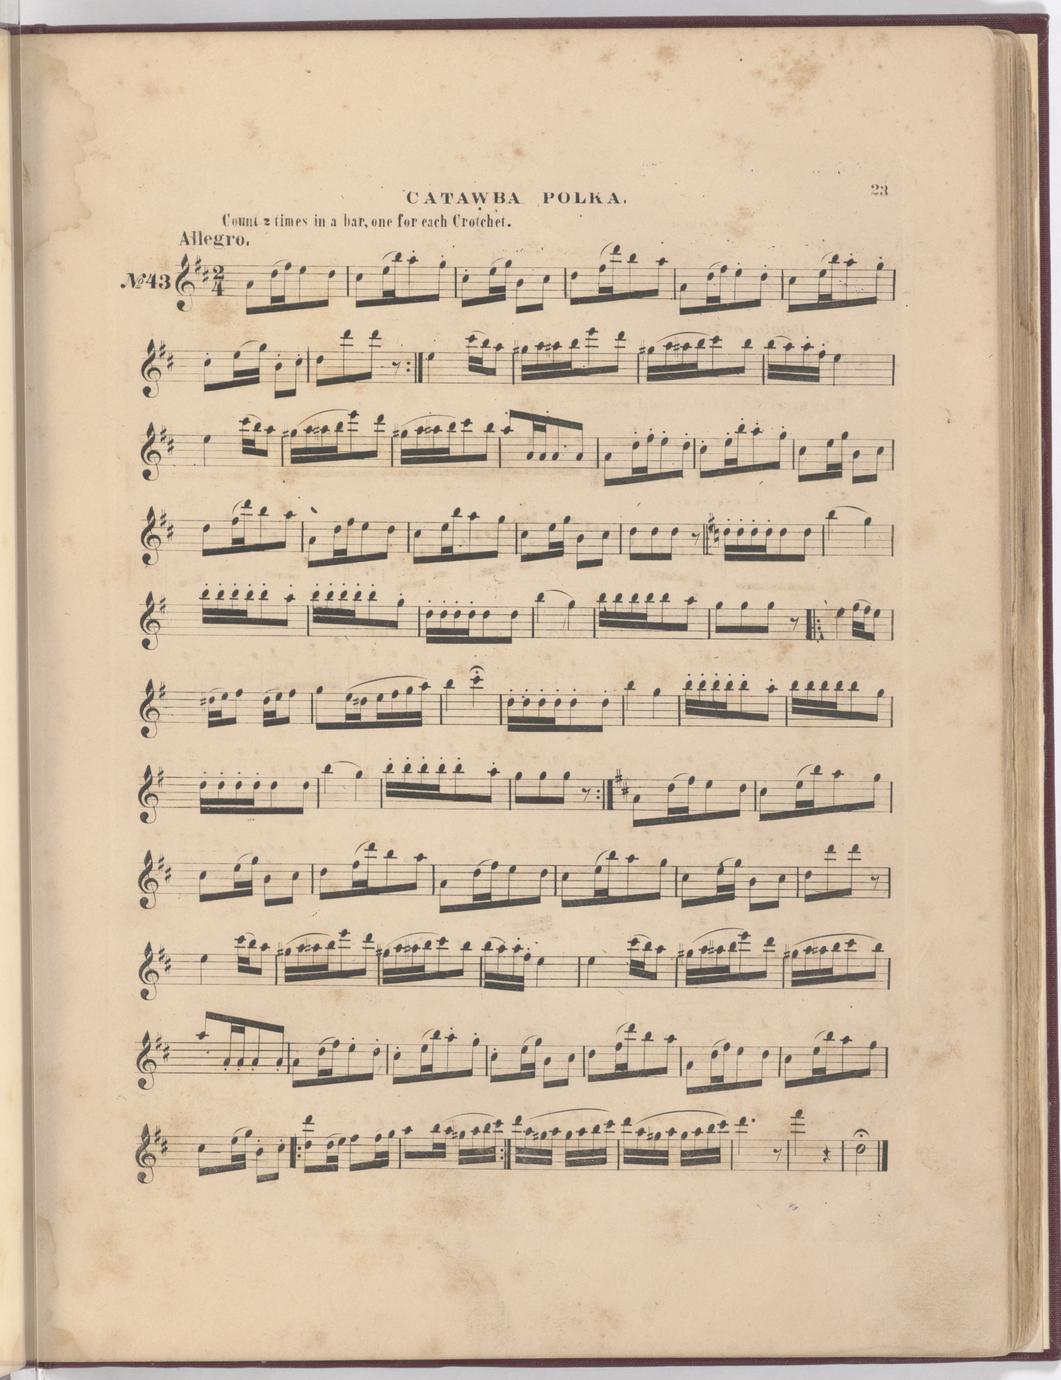 CATAWBA POLKA.
23
Count 2 times in a bar, one for each Crotchet.
Allegro.
№43
2
4